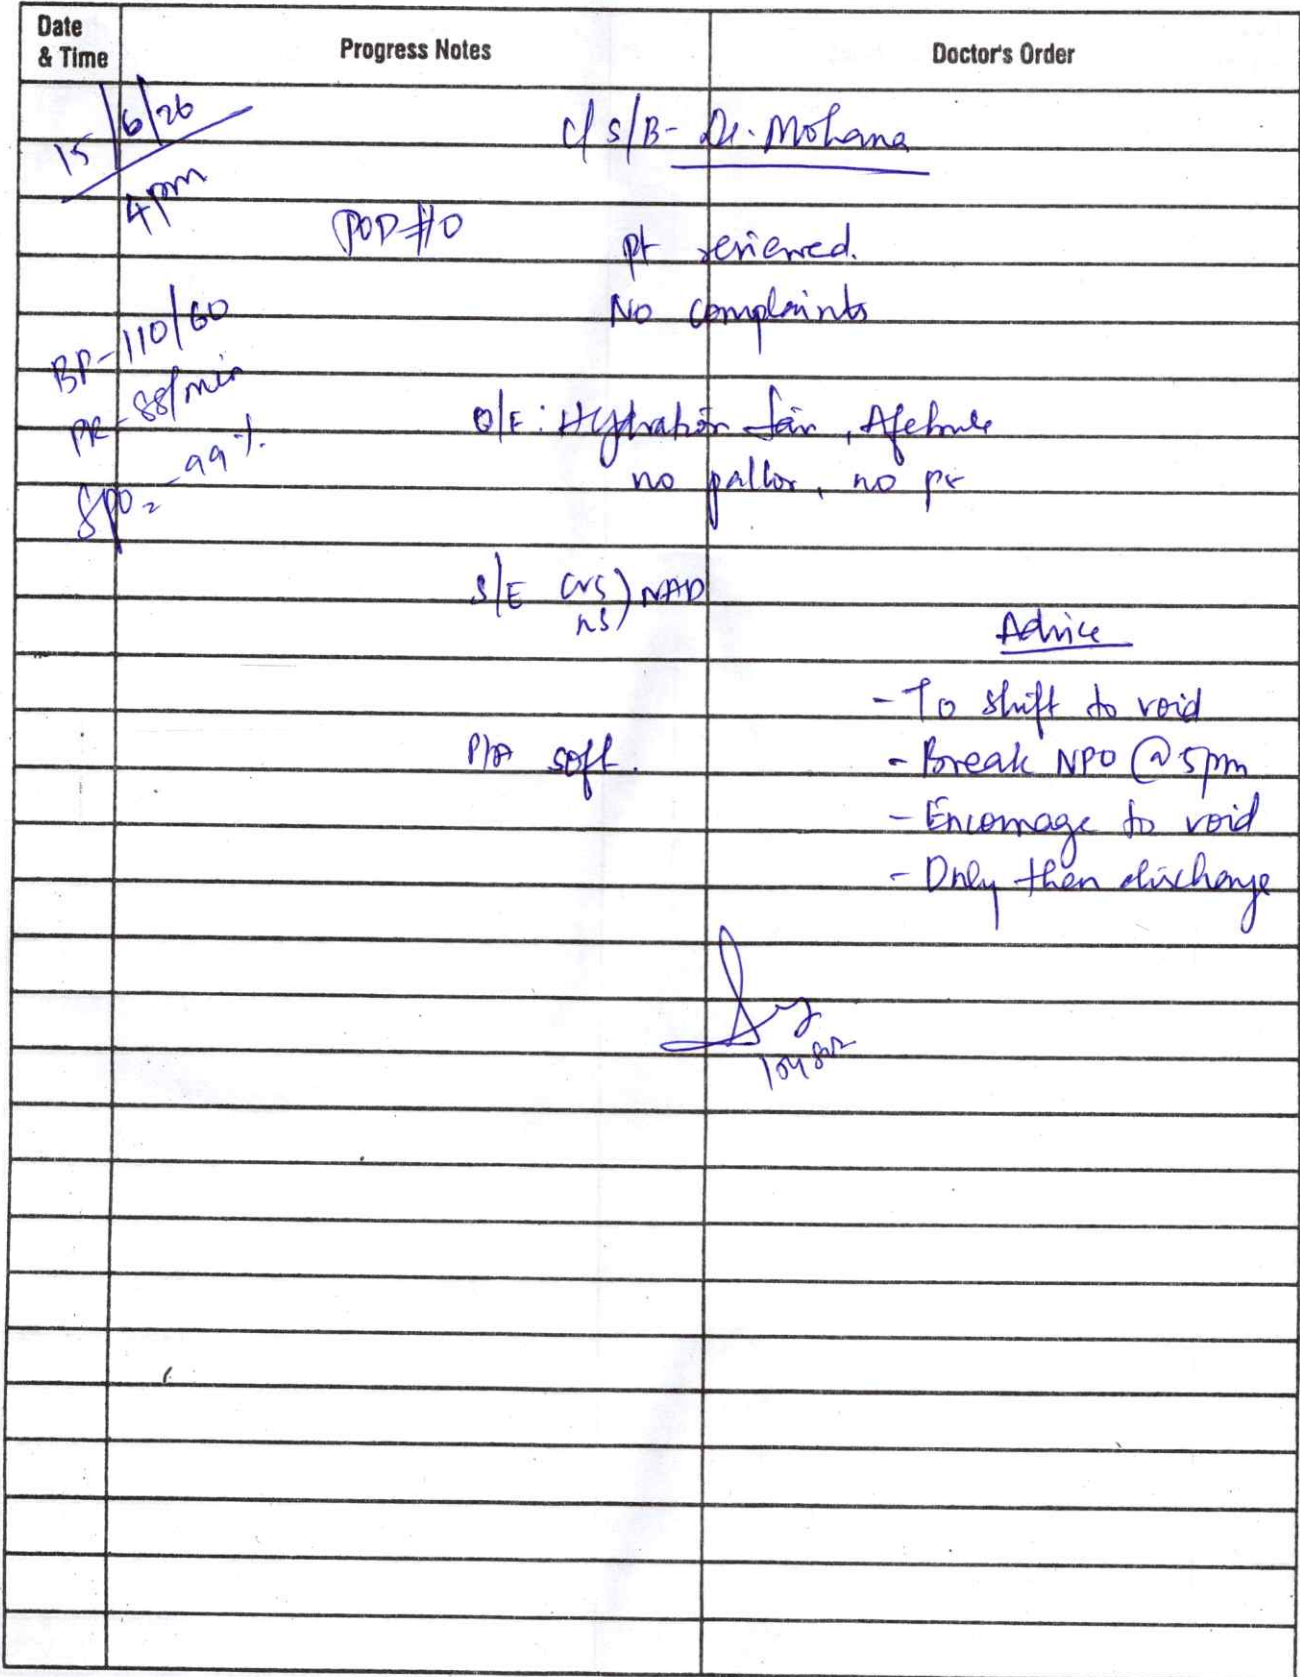 Date & Time
Progress Notes
Doctor's Order
15/6/26
4pm
C/S/B- Dr. Mohana
POD #0
pt reviewed.
No complaints
BP- 110/60
PR- 88/min
SpO2 - 99%
O/E: Hydration fair, Afebrile
no pallor, no pe
S/E CVS) NAD
RS)
Advice
- To shift to void
P/A soft.
- Break NPO @ 5pm
- Encourage to void
- Only then discharge